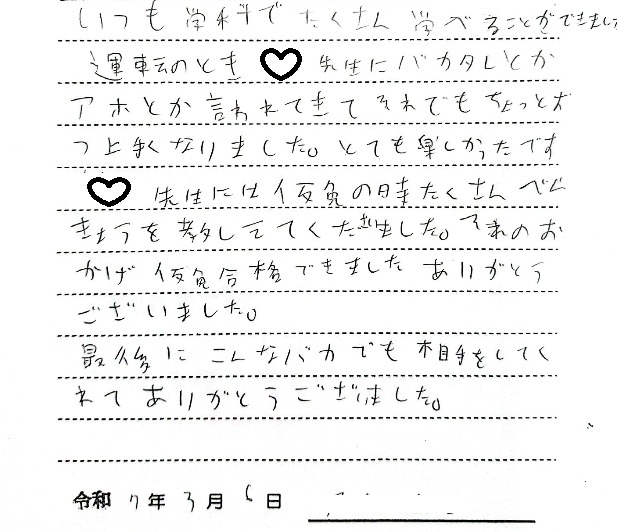 いつも学科でたくさん学べることができまし
運転のとき ♡ 先生にバカタレとか
アホとか言われてきてそれでもちょっとず
つ上手くなりました。とても楽しかったです
♡ 先生には仮免の時たくさんべん
きょうを教してくださいました。それのお
かげ仮免合格できましたありがとう
ございました。
最後にこんなバカでも相手をしてく
れてありがとうございました。
令和 7年 3月 6日